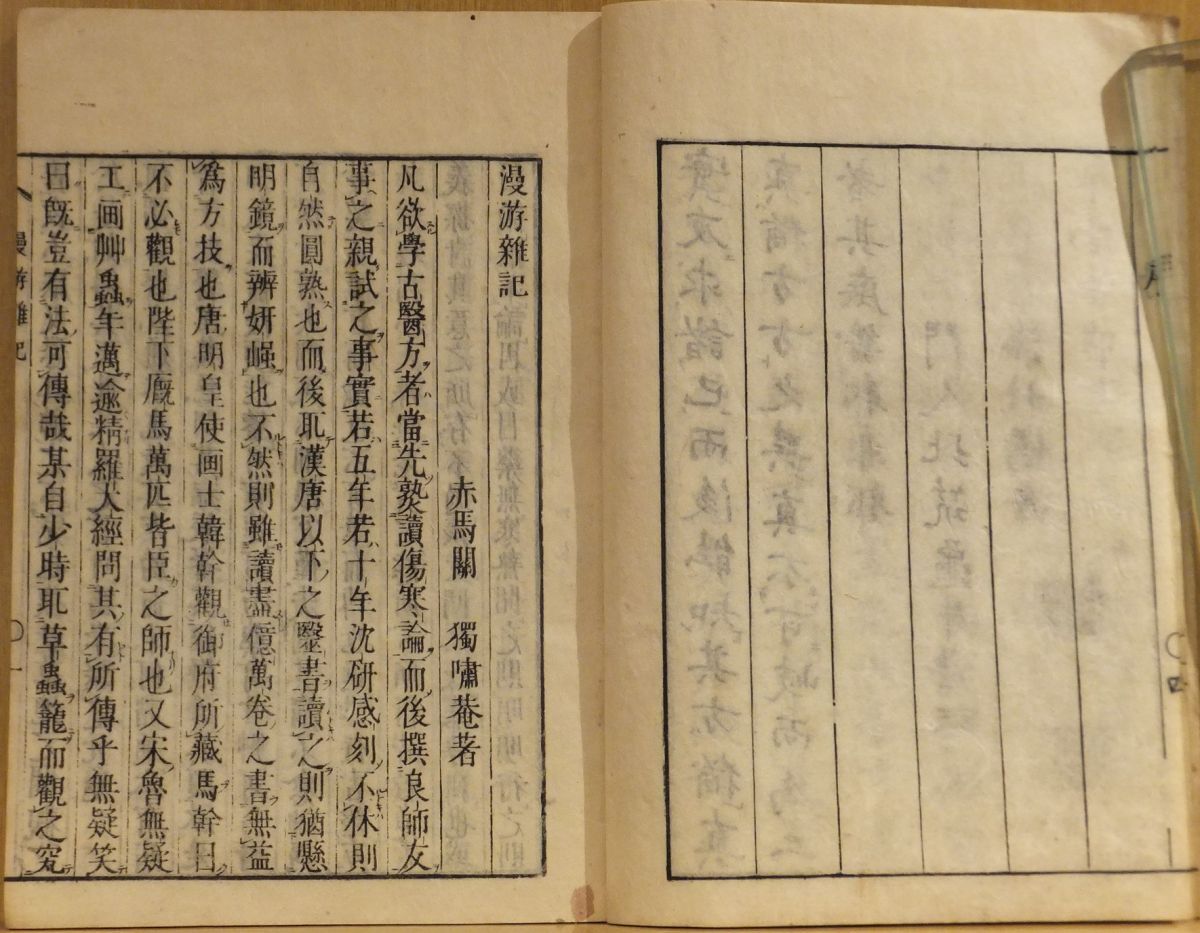 漫游雜記
赤馬關 獨嘯菴著
凡欲學古醫方者當先熟讀傷寒論而後撰良師友
事之親試之事實若五年若十年沈研感刻不休則
自然圓熟也而後取漢唐以下之醫書讀之則猶懸
明鏡而辨妍媸也不然則雖讀盡億萬卷之書無益
爲方技也唐明皇使画士韓幹觀御府所藏馬幹曰
不必觀也陛下廐馬萬匹皆臣之師也又宋魯無疑
工画艸蟲年邁逾精羅大經問其有所傳乎無疑笑
曰旣豈有法可傳哉某自少時取草蟲籠而觀之究
漫游雜記
〇一
序
〇四